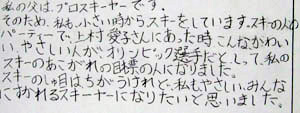 私の父は、プロスキーヤーです。
そのため、私も小さい時からスキーをしています。スキーの人の
パーティーで、上村愛子さんにあった時こんなかわい
い、やさしい人がオリンピック選手だとしって、私の
スキーのあこがれの目標の人になりました。
スキーのしゅ目はちがうけれど、私もやさしい、みんな
にすかれるスキーヤーになりたいと思いました。